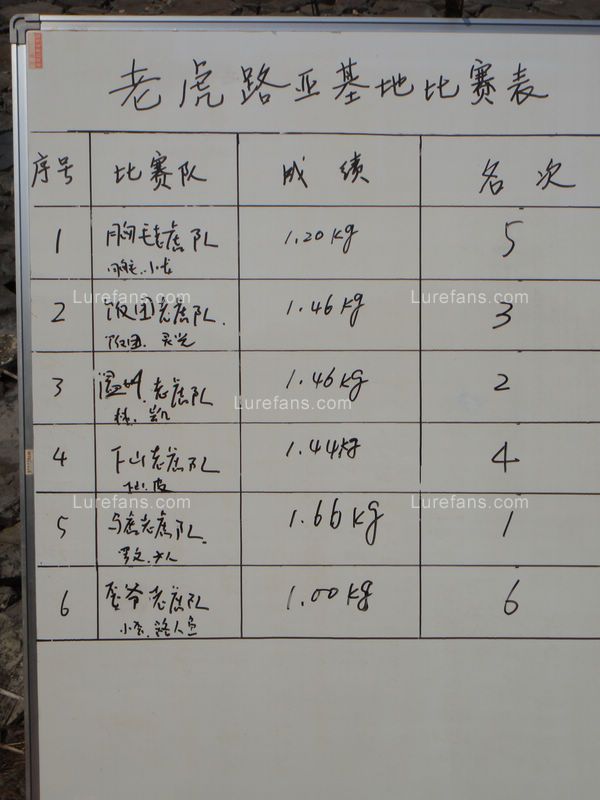 老虎路亚基地比赛表
序号 比赛队 成绩 名次
1 胸毛老虎队 1.20kg 5
Lurefans.com Lurefans.com
2 饭团老虎队. 1.46kg 3
饭团.
3 温州.老虎队 1.46kg 2
Lurefans.com
林.凯
4 下山老虎队 1.44kg 4
下山.
Lurefans.com Lurefans.com
5 老虎队. 1.66kg 1
6 爷老虎队 1.00kg 6
小李.路人鱼